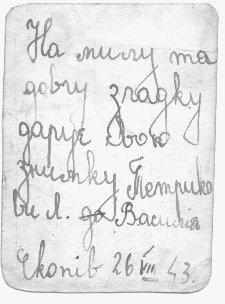 На милу та
добру згадку
даруе свою
знимку Петрико
ви Л. до Василія
26 VIII 43.